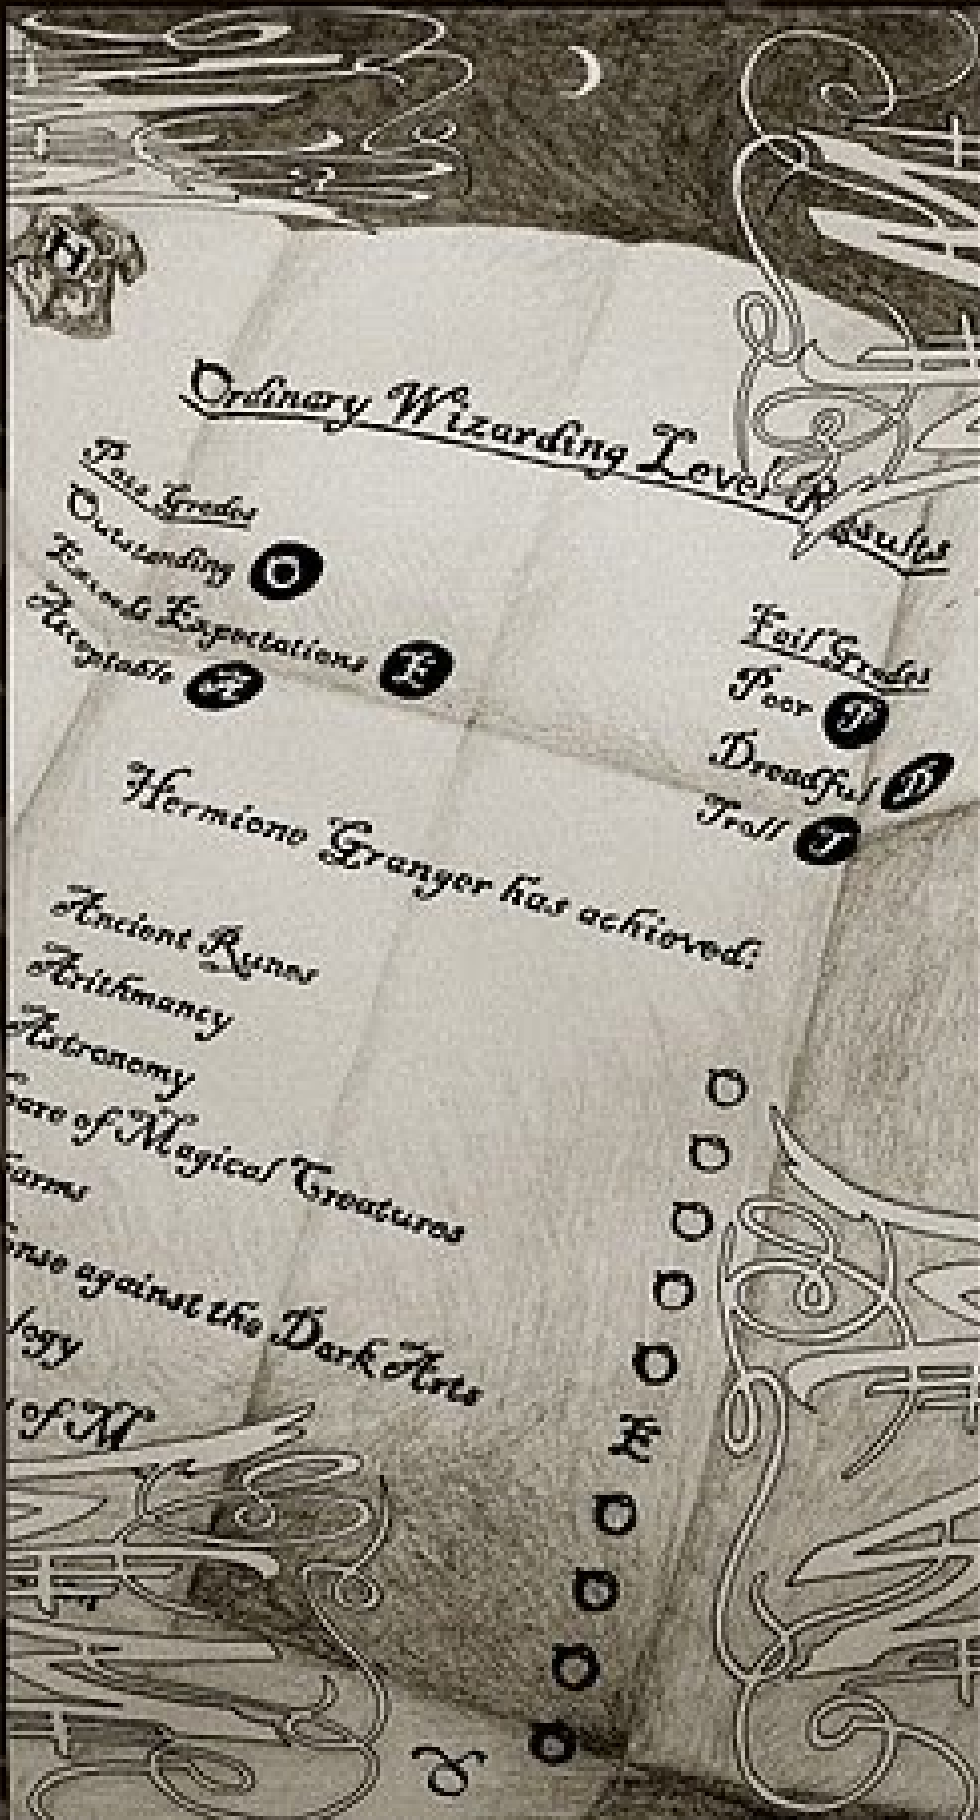 H
Ordinary Wizarding Level Results
Pass Grades
Outstanding O
Exceeds Expectations E
Acceptable A
Fail Grades
Poor P
Dreadful D
Troll T
Hermione Granger has achieved:
Ancient Runes O
Arithmancy O
Astronomy O
Care of Magical Creatures O
arms O
ense against the Dark Arts E
logy O
of M O
O
O